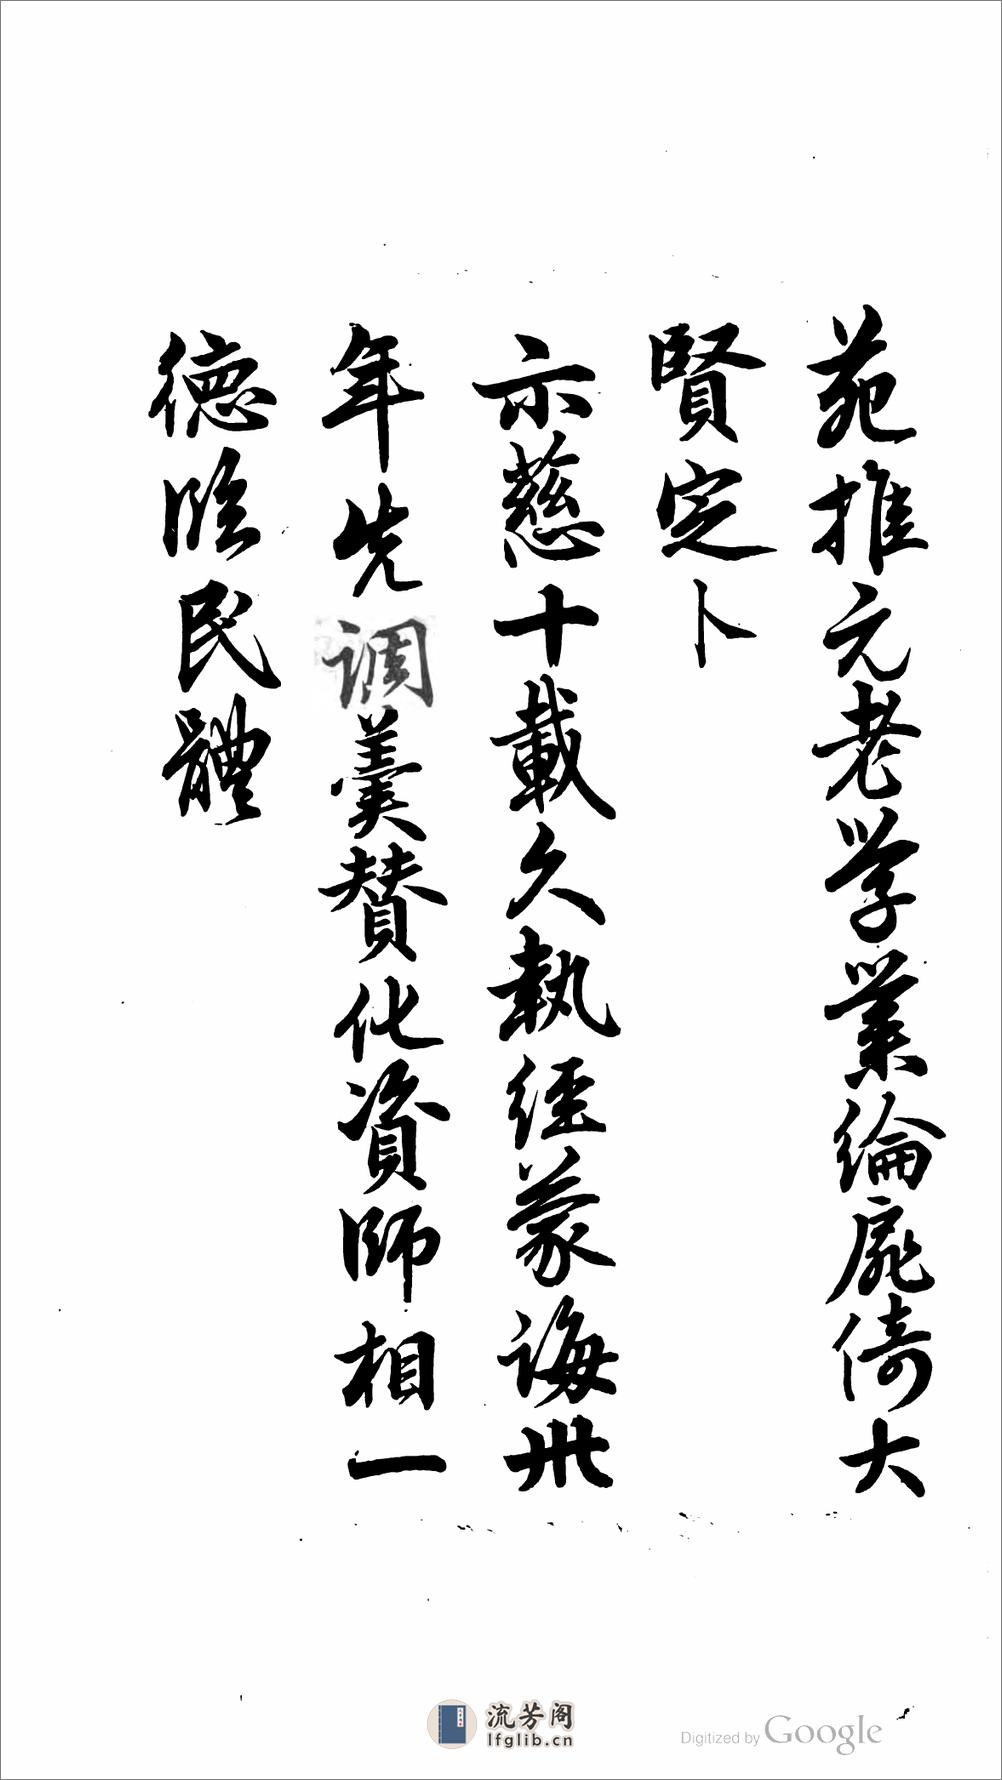 苑推元老学業綸扉倚大
賢定卜
示慈十載久執經蒙誨卅
年先調羹賛化資師相一
德臨民體
流芳阁
lfglib.cn
Digitized by Google